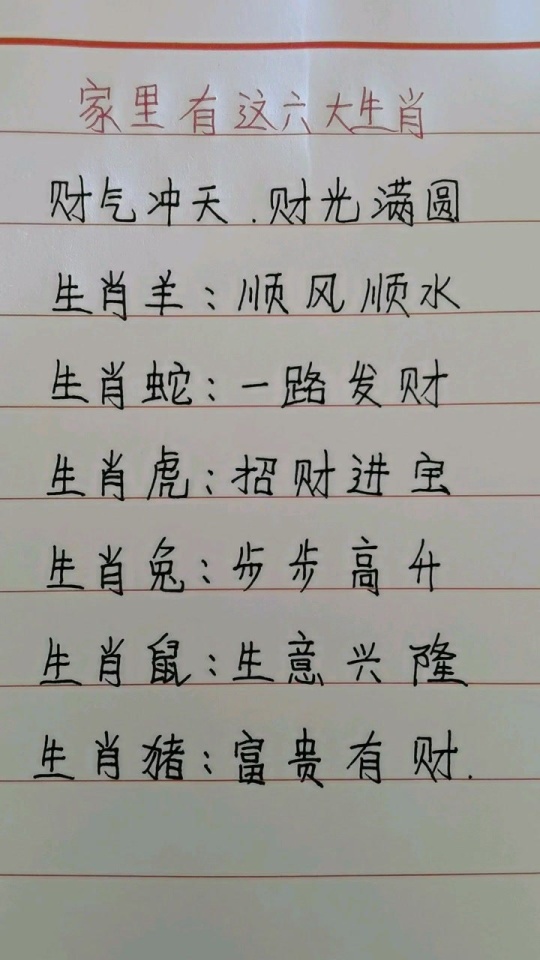 家里有这六大生肖
财气冲天.财光满圆
生肖羊:顺风顺水
生肖蛇:一路发财
生肖虎:招财进宝
生肖兔:步步高升
生肖鼠:生意兴隆
生肖猪:富贵有财.